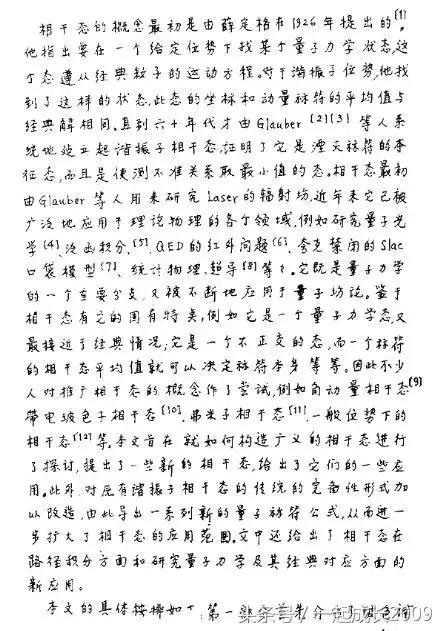 相干态的概念最初是由薛定格在1926年提出的,[1]
他指出要在一个给定位势下找某个量子力学状态,这
个态遵从经典粒子的运动方程.对于谐振子位势,他找
到了这样的状态,此态的坐标和动量标符的平均值与
经典解相同.直到六十年代才由Glauber [2][3] 等人系
统地建立起谐振子相干态,证明了它是湮灭标符的本
征态,而且是使测不准关系取最小值的态.相干态最初
由Glauber等人用来研究Laser的辐射场,近年来它已被
广泛地应用于理论物理的各个领域,例如研究量子光
学[4]、泛函积分、[5]、QED的红外问题[6]、夸克禁闭的Slac
口袋模型[7]、统计物理、超导[8]等等.它既是量子力学
的一个重要分支,又被不断地应用于量子场论.鉴于
相干态有它的固有特点,例如它是一个量子力学态,又
最接近于经典情况;它是一个不正交的态,而一个标符
的相干态平均值就可以决定标符本身等等.因此不少
人对推广相干态的概念作了尝试,例如角动量相干态[9]
带电玻色子相干态[10].弗米子相干态[11].一般位势下的
相干态[12]等.本文旨在就如何构造广义的相干态进行
了探讨,提出了一些新的相干态,给出了它们的一些应
用.此外,对原有谐振子相干态的传统的完备性形式加
以改造,由此导出一系列新的量子标符公式,从而进一
步扩大了相干态的应用范围.文中还给出了相干态在
路径积分方面和研究量子力学及其经典对应方面的
新应用。
本文的具体安排如下,第一
头条号 / 一起成长2009